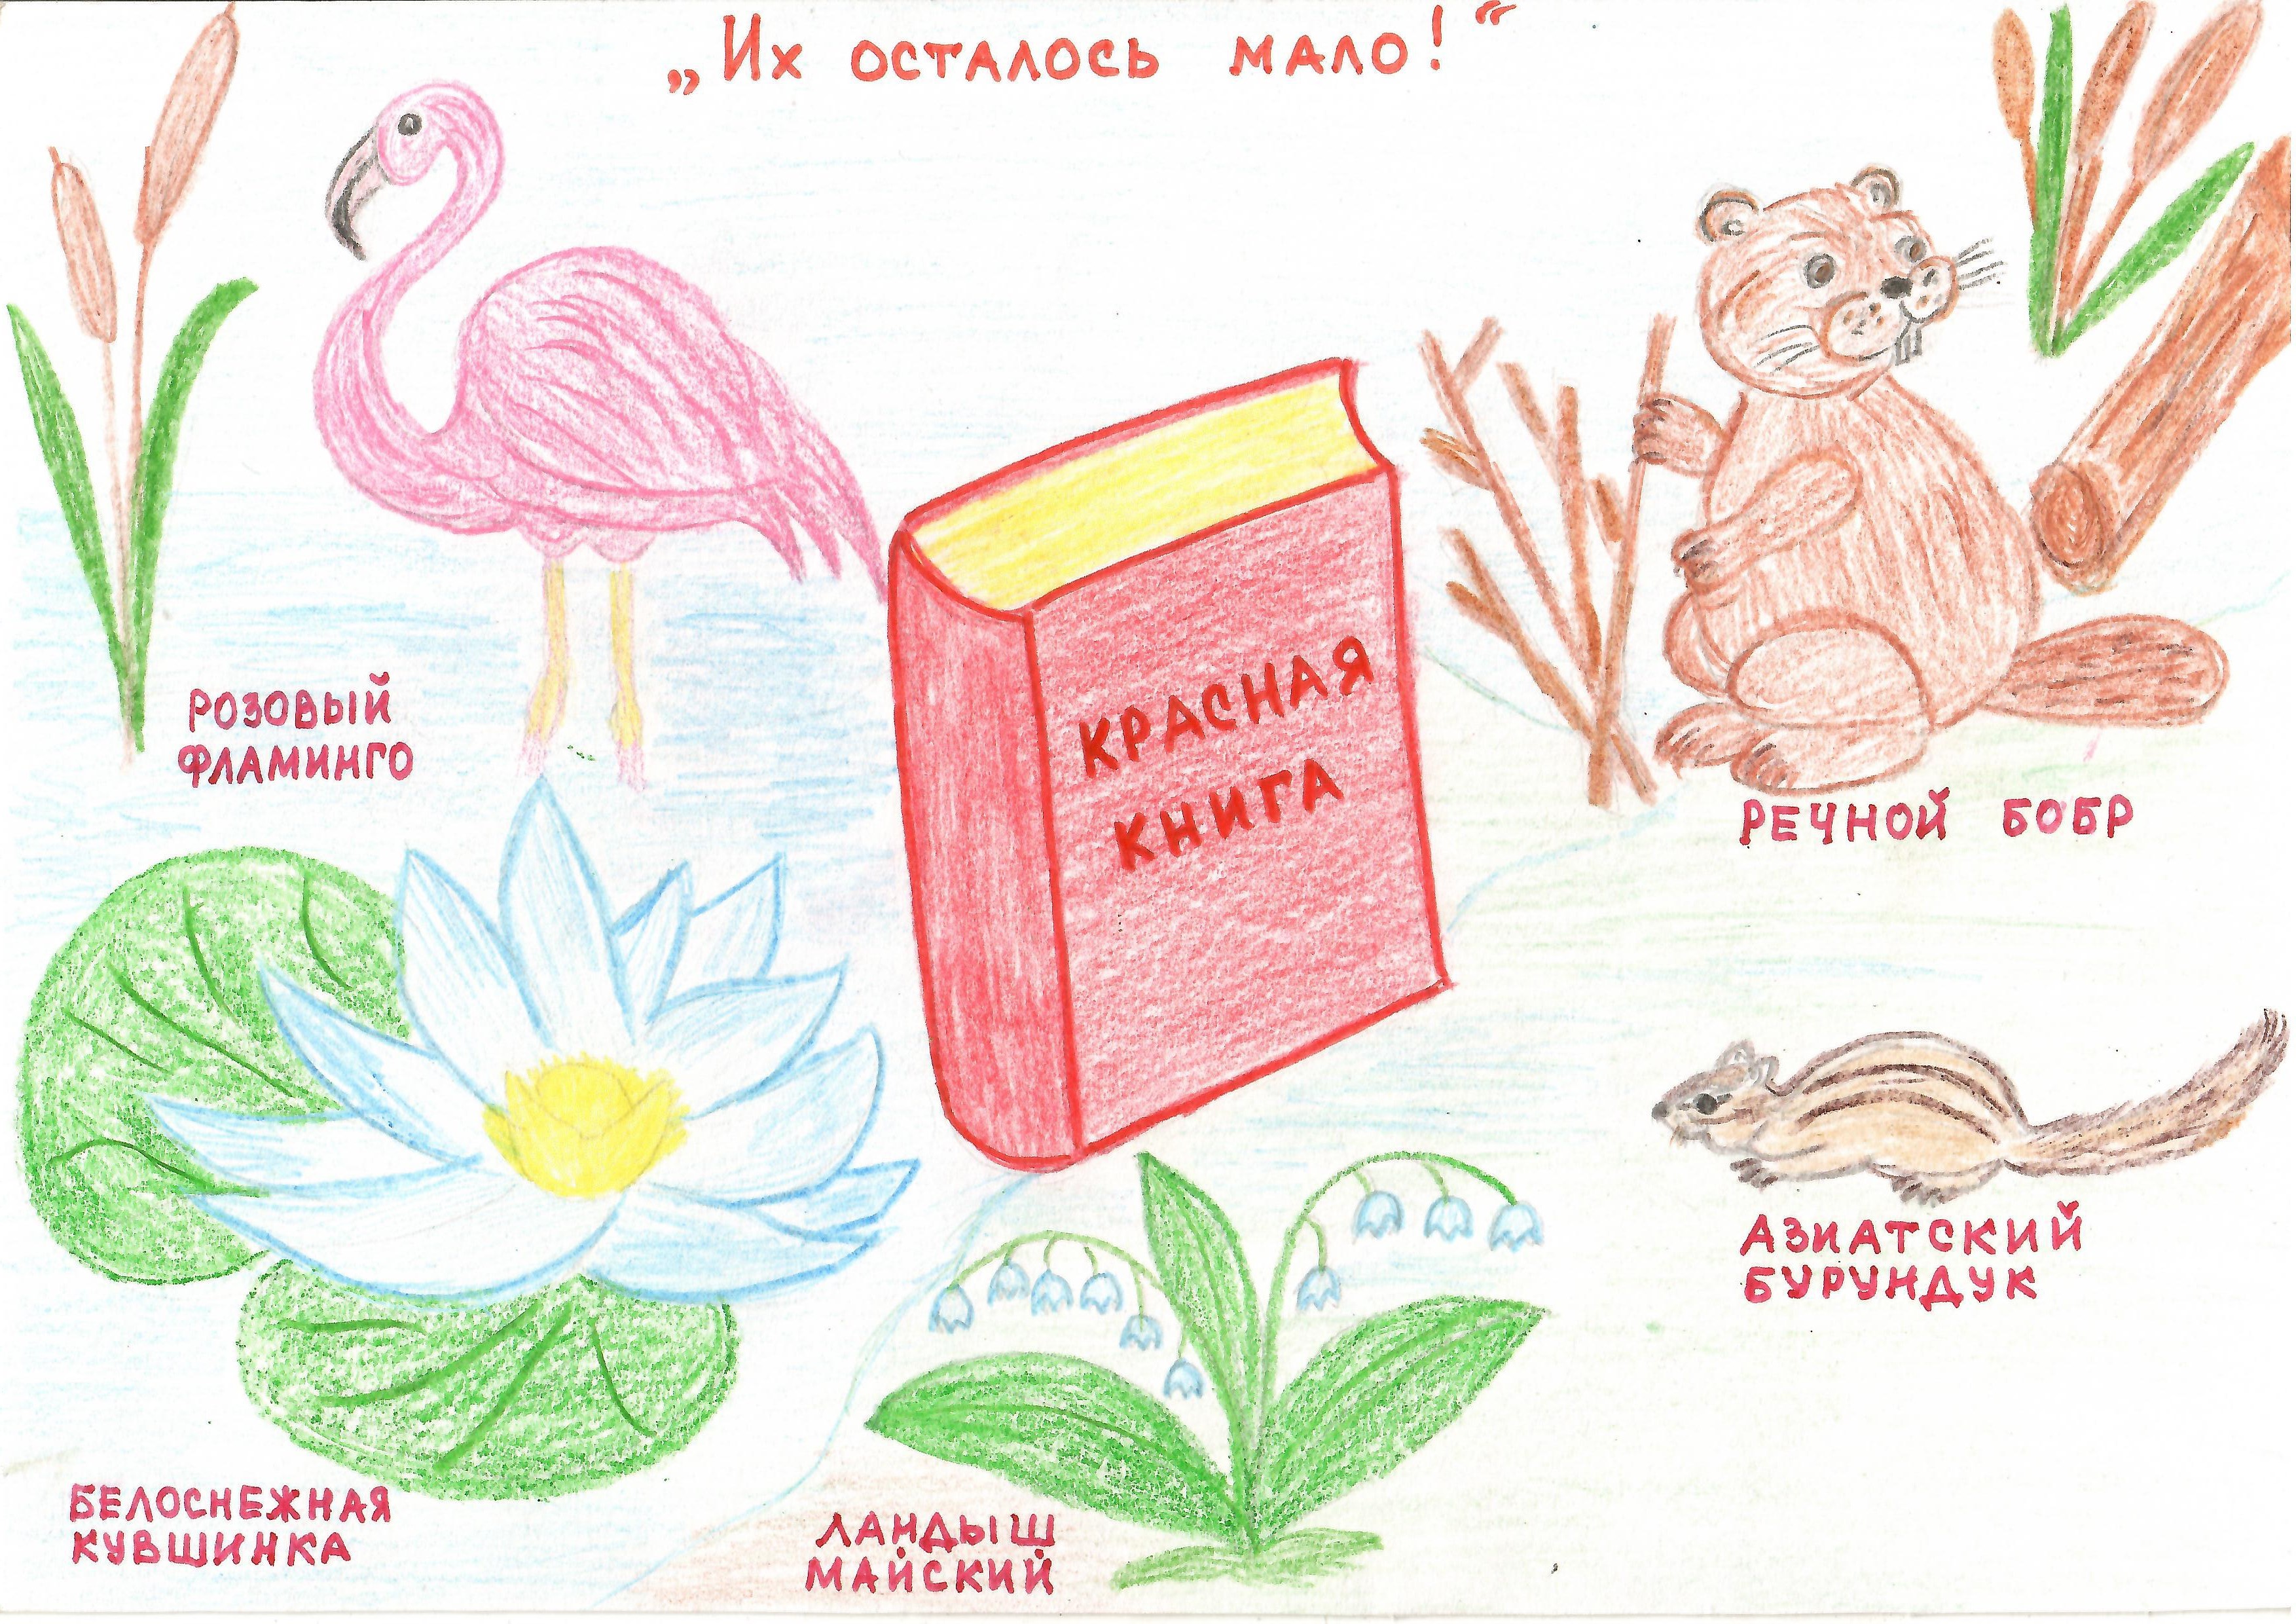 „Их осталось мало!“
РОЗОВЫЙ
ФЛАМИНГО
КРАСНАЯ
КНИГА
РЕЧНОЙ БОБР
АЗИАТСКИЙ
БУРУНДУК
БЕЛОСНЕЖНАЯ
КУВШИНКА
ЛАНДЫШ
МАЙСКИЙ